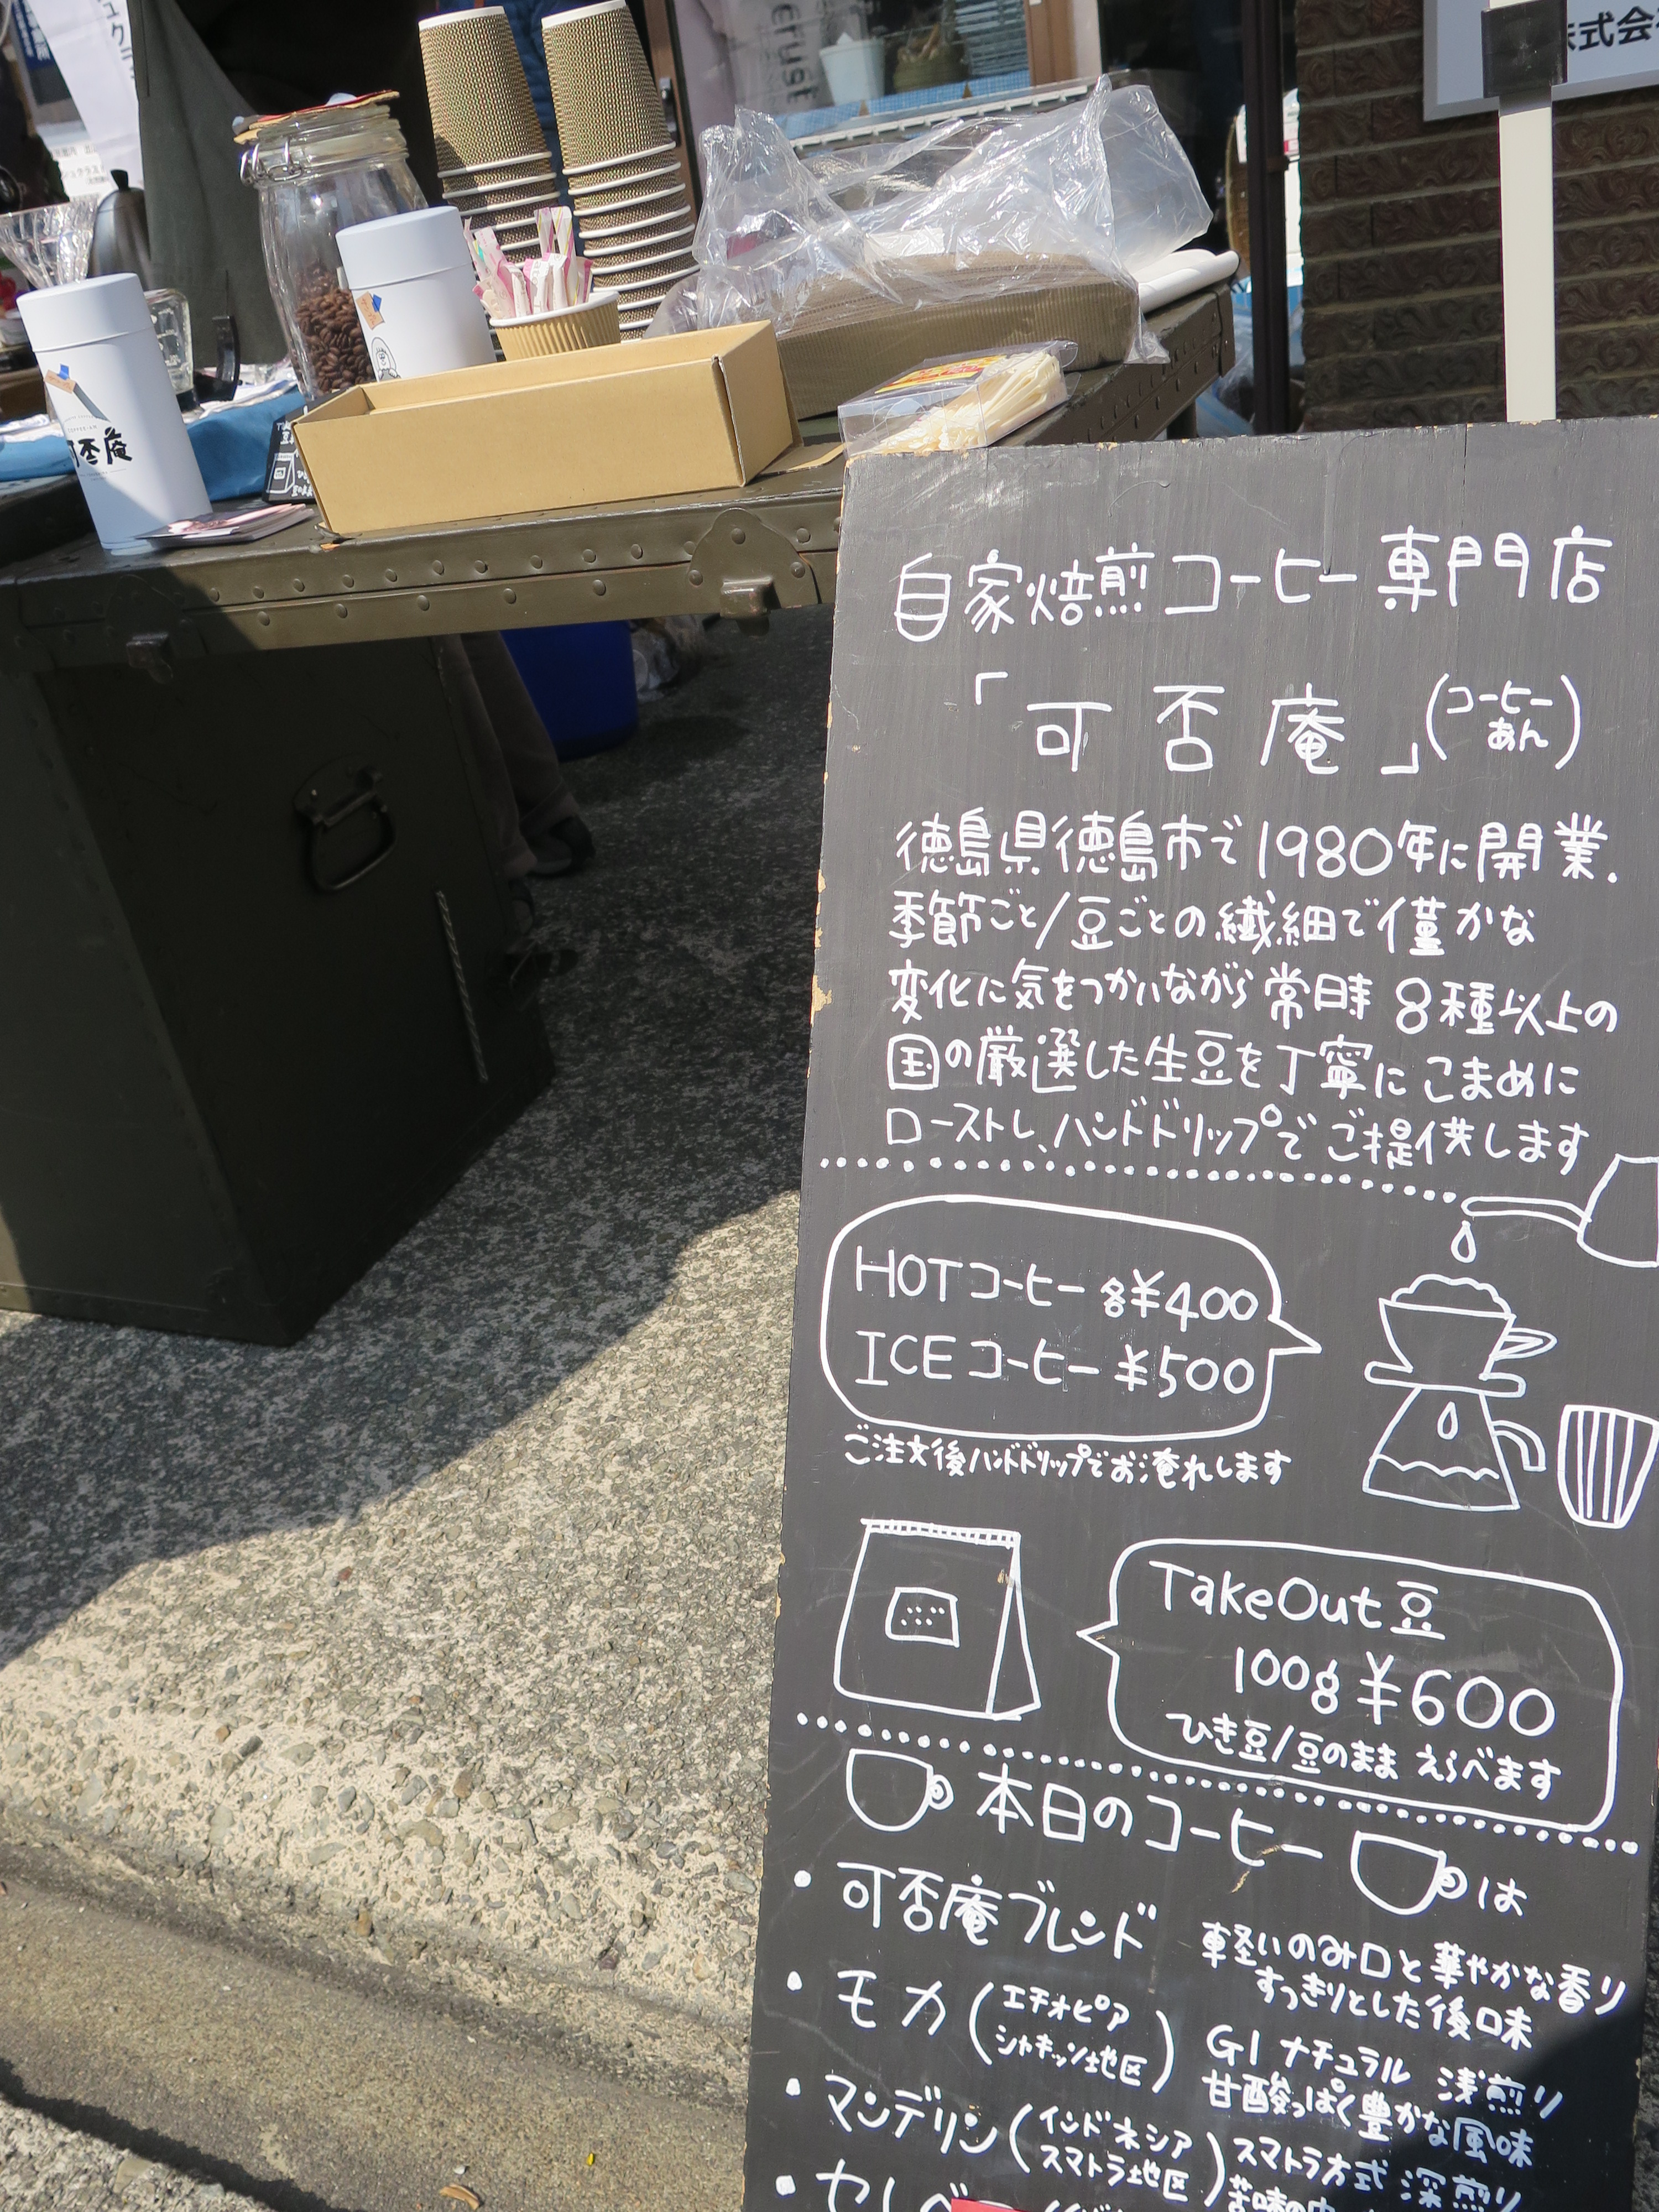 株式会
可否庵
自家焙煎コーヒー専門店
「可否庵」(コーヒーあん)
徳島県徳島市で1980年に開業.
季節ごと/豆ごとの繊細で僅かな
変化に気をつかいながら常時8種以上の
国の厳選した生豆を丁寧にこまめに
ローストし、ハンドドリップでご提供します
HOTコーヒー各¥400
ICEコーヒー¥500
ご注文後ハンドドリップでお淹れします
TakeOut豆
100g¥600
ひき豆/豆のまま えらべます
本日のコーヒーは
・可否庵ブレンド
軽いのみ口と華やかな香り
すっきりとした後味
・モカ(エチオピア シャキッソ地区)
G1 ナチュラル 浅煎り
甘酸っぱく豊かな風味
・マンデリン(インドネシア スマトラ地区)
スマトラ方式 深煎り
・セレベ